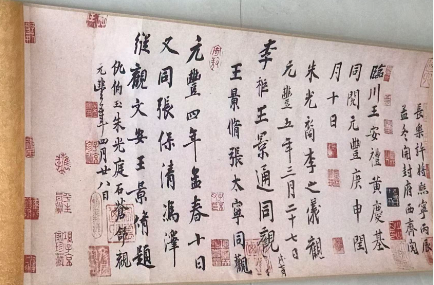 長樂許將熙寧丙辰
孟冬開封府西齋閱
臨川王安禮黃慶基
同閱元豐庚申閏
月十日
朱光裔李之儀觀
元豐五年三月二十七日
李祉王景通同觀
王景脩張太寧同觀
元豐四年孟春十日
又同張保清馮澤
縱觀文安王景脩題
仇伯玉朱光庭石蒼舒觀
元豐五年四月廿八日